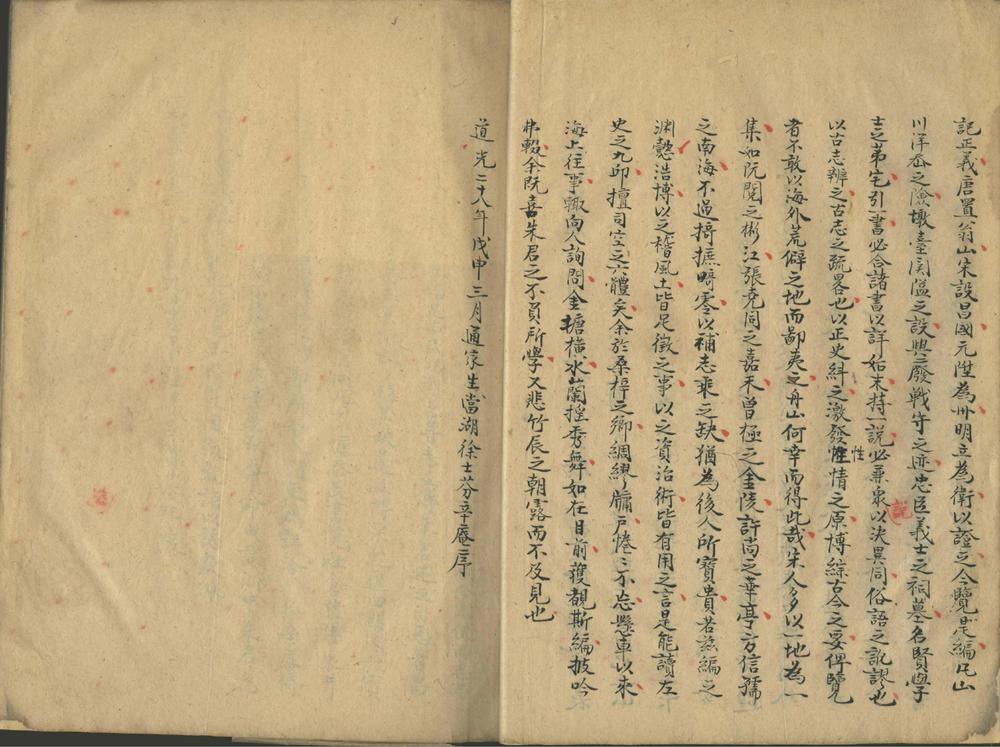 記正義唐置翁山宋設昌國元陞為州明立為衛以證之今覽是編凡山
川洋嶴之險墩臺関隘之設興廢戰守之迹忠臣義士之祠墓名賢學
士之苐宅引一書必合諸書以詳始末持一說必兼衆以決異同俗語之訛謬也
說
以古志辨之古志之疏畧也以正史糾之激發性情之原博綜古今之要俾覽
性
者不敢以海外荒僻之地而鄙夷之舟山何幸而得此哉宋人多以一地為一
集如阮閱之郴江張堯同之嘉禾曾極之金陵許尚之華亭方信孺
之南海不過掎摭畸零以補志乘之缺猶為後人所寶貴若茲編之
淵懿浩博以之稽風土皆足徵之事以之資治術皆有用之言是能讀左
史之九邱擅司空之六體矣余於桑梓之鄉綢繆牖戶惓惓不忘懸車以來
海上往事輙向人詢問金塘橫水蘭搖秀舞如在目前獲覩斯編披吟
弗輟余既喜朱君之不負所學又悲竹辰之朝露而不及見也
道光二十八年戊申三月通家生當湖徐士芬辛庵序